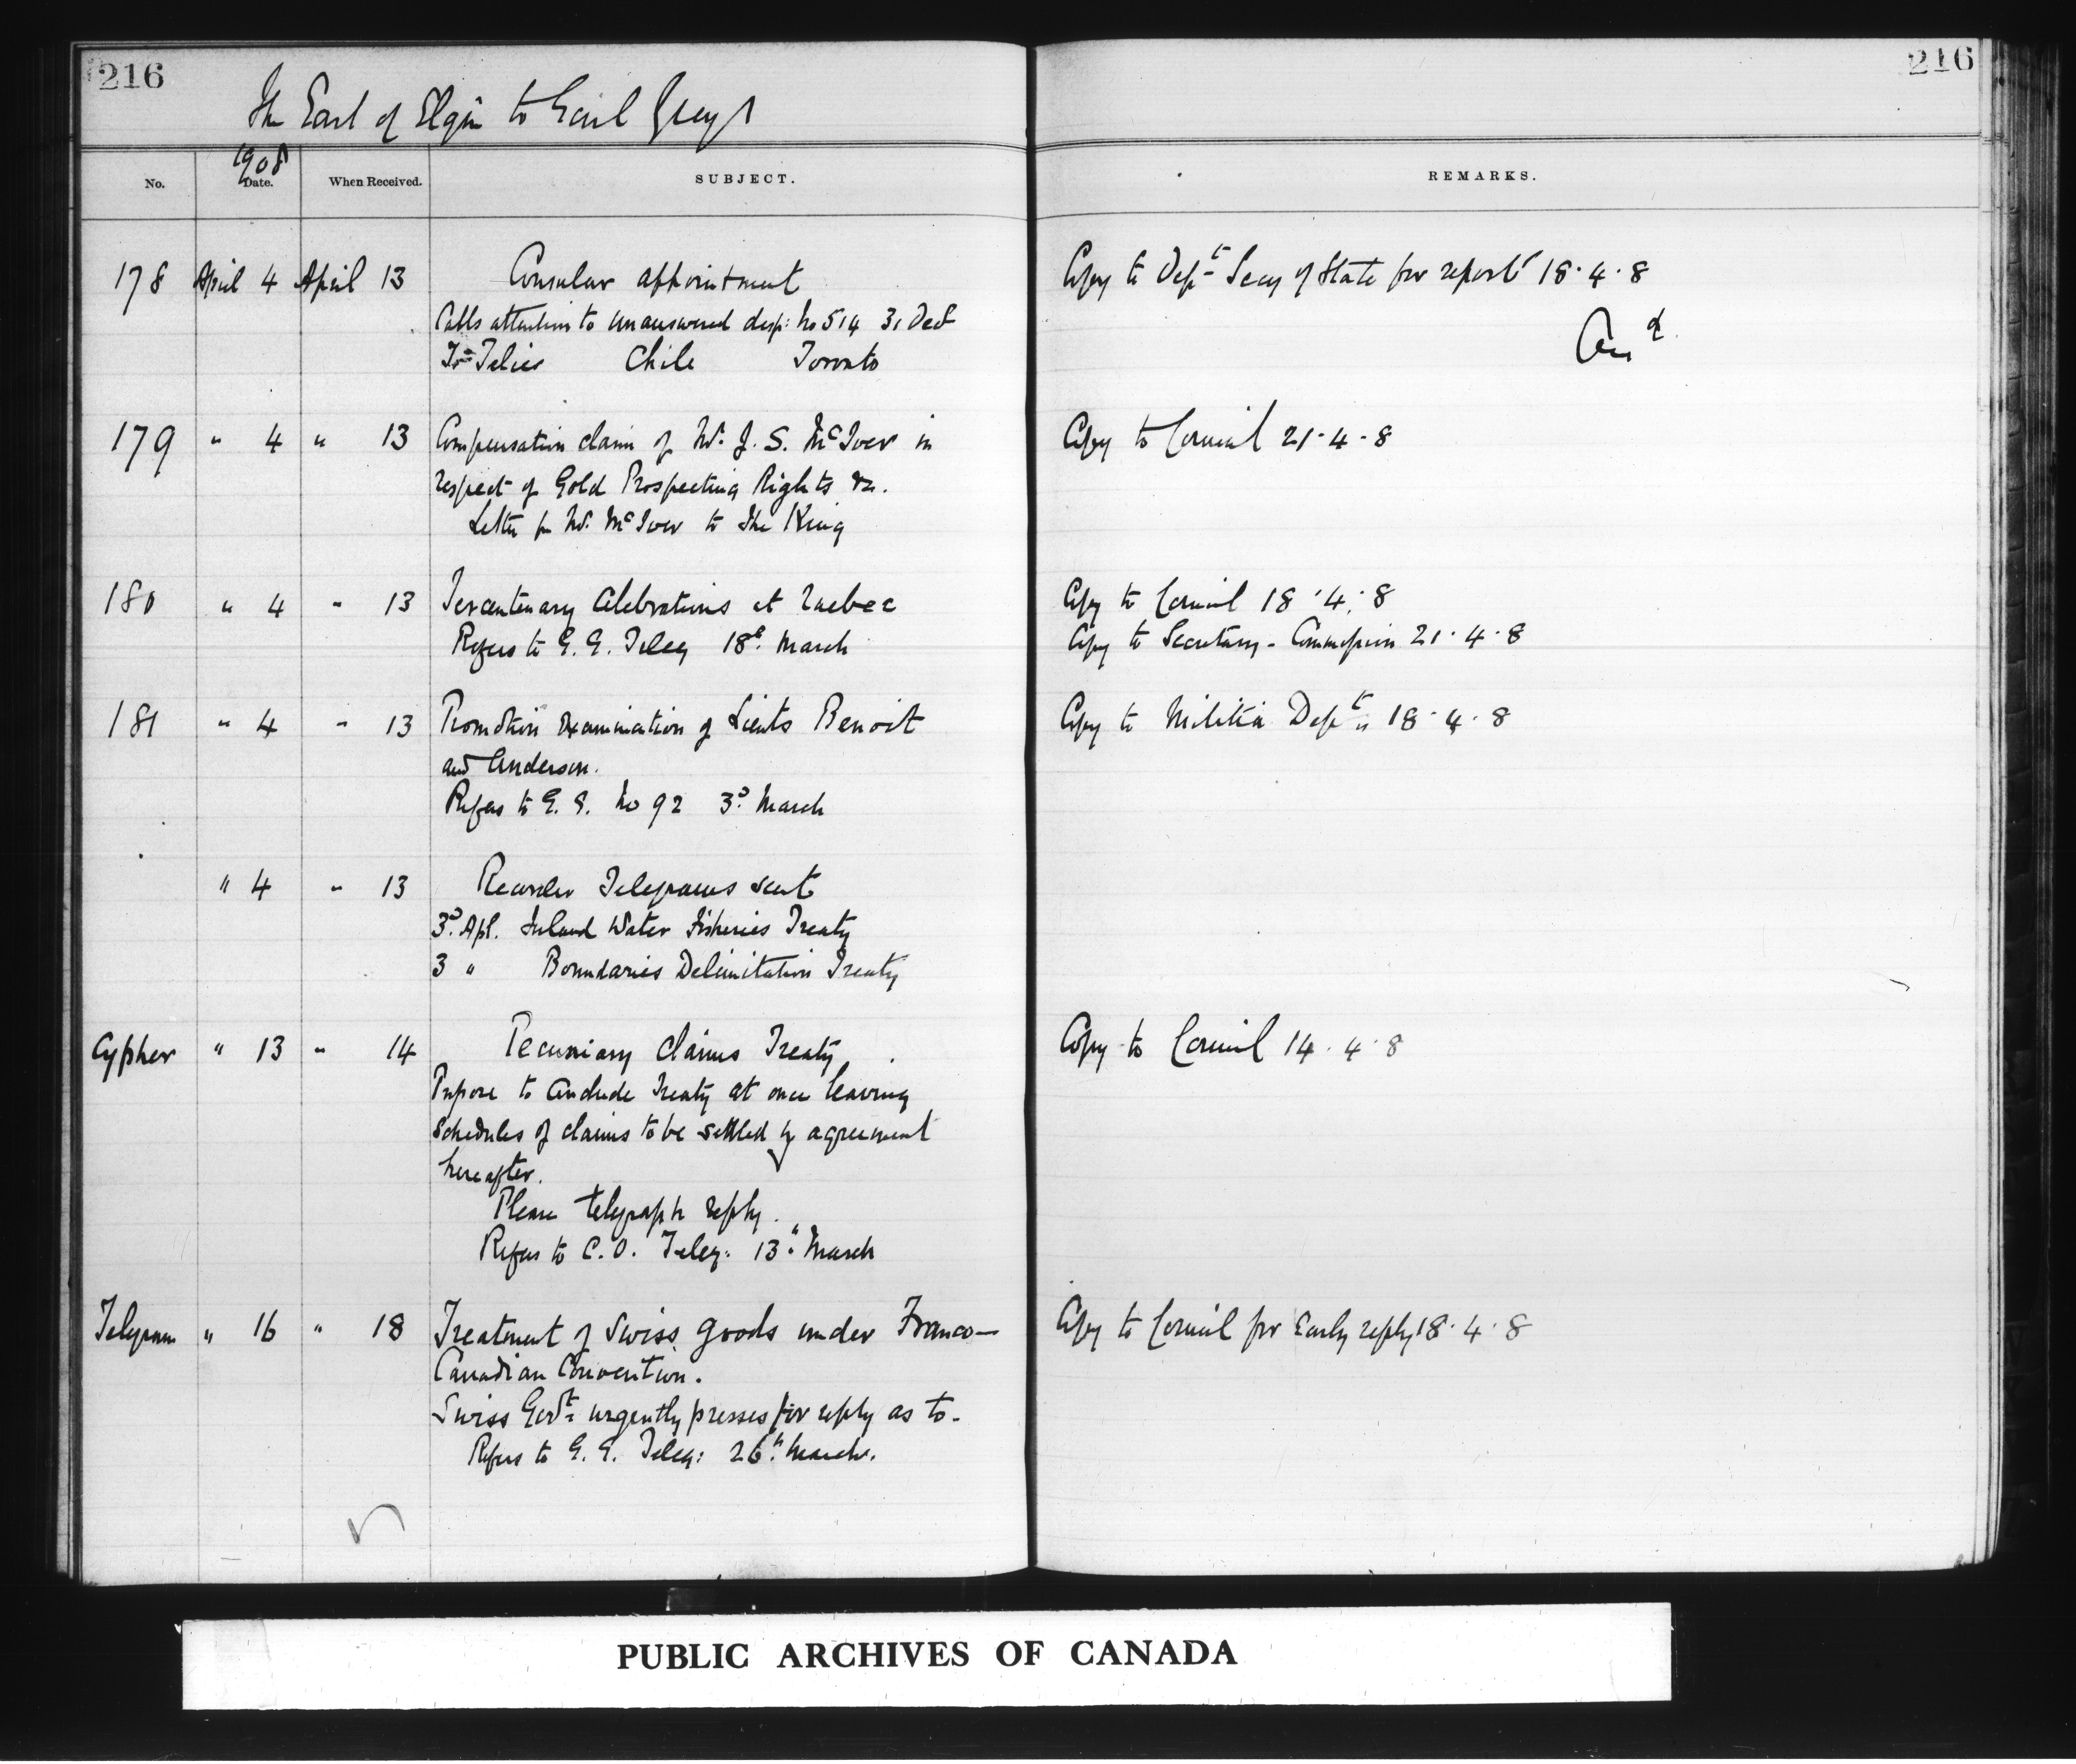 216
216
The Earl of Elgin to Earl Grey
1908
No. Date. When Received. SUBJECT. REMARKS.
178 April 4 April 13 Consular appointment Copy to Dept Secy of State for report 18.4.8
Calls attention to unanswered desp: No 514 31 Dec
Ansd
Chile Toronto
179 " 4 " 13 Compensation claim of Mr. J. S. McIver in Copy to Council 21.4.8
respect of Gold Prospecting Rights &c.
Letter fm Mr. McIver to The King
180 " 4 " 13 Tercentenary Celebrations at Quebec Copy to Council 18.4.8
Refers to G. G. Teleg 18th March Copy to Secretary - Commission 21.4.8
181 " 4 " 13 Promotion Examination of Lieuts Benoit Copy to Militia Dept 18.4.8
and Anderson.
Refers to G. G. No 92 3d March
" 4 " 13 Recorder Telegrams sent
3d Apl. Inland Water Fisheries Treaty
3 " Boundaries Delimitation Treaty
Cypher " 13 " 14 Pecuniary Claims Treaty Copy to Council 14.4.8
Propose to Conclude Treaty at once leaving
Schedules of claims to be settled by agreement
hereafter.
Please telegraph reply.
Refers to C. O. Teleg: 13th March
Telegram " 16 " 18 Treatment of Swiss goods under Franco- Copy to Council for Early reply 18.4.8
Canadian Convention.
Swiss Govt urgently presses for reply as to.
Refers to G. G. Teleg: 26th March.
PUBLIC ARCHIVES OF CANADA